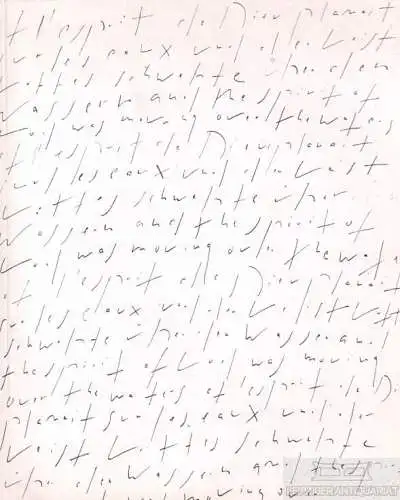 et l'esprit de Dieu planait
sur les eaux und der Geist
Gottes schwebte über dem
Wassern and the spirit of
God was moving over the waters
et l'esprit de Dieu planait
sur les eaux und der Geist
Gottes schwebte über
Wassern and the spirit of
God was moving over the wat
et l'esprit de Dieu planait
sur les eaux und der Geist Gott
schwebte über den Wassern and
the spirit of God was moving
over the waters et l'esprit de Di
planait sur les eaux und der
Geist Gottes schwebte
über den Wassern and the spir
moving over